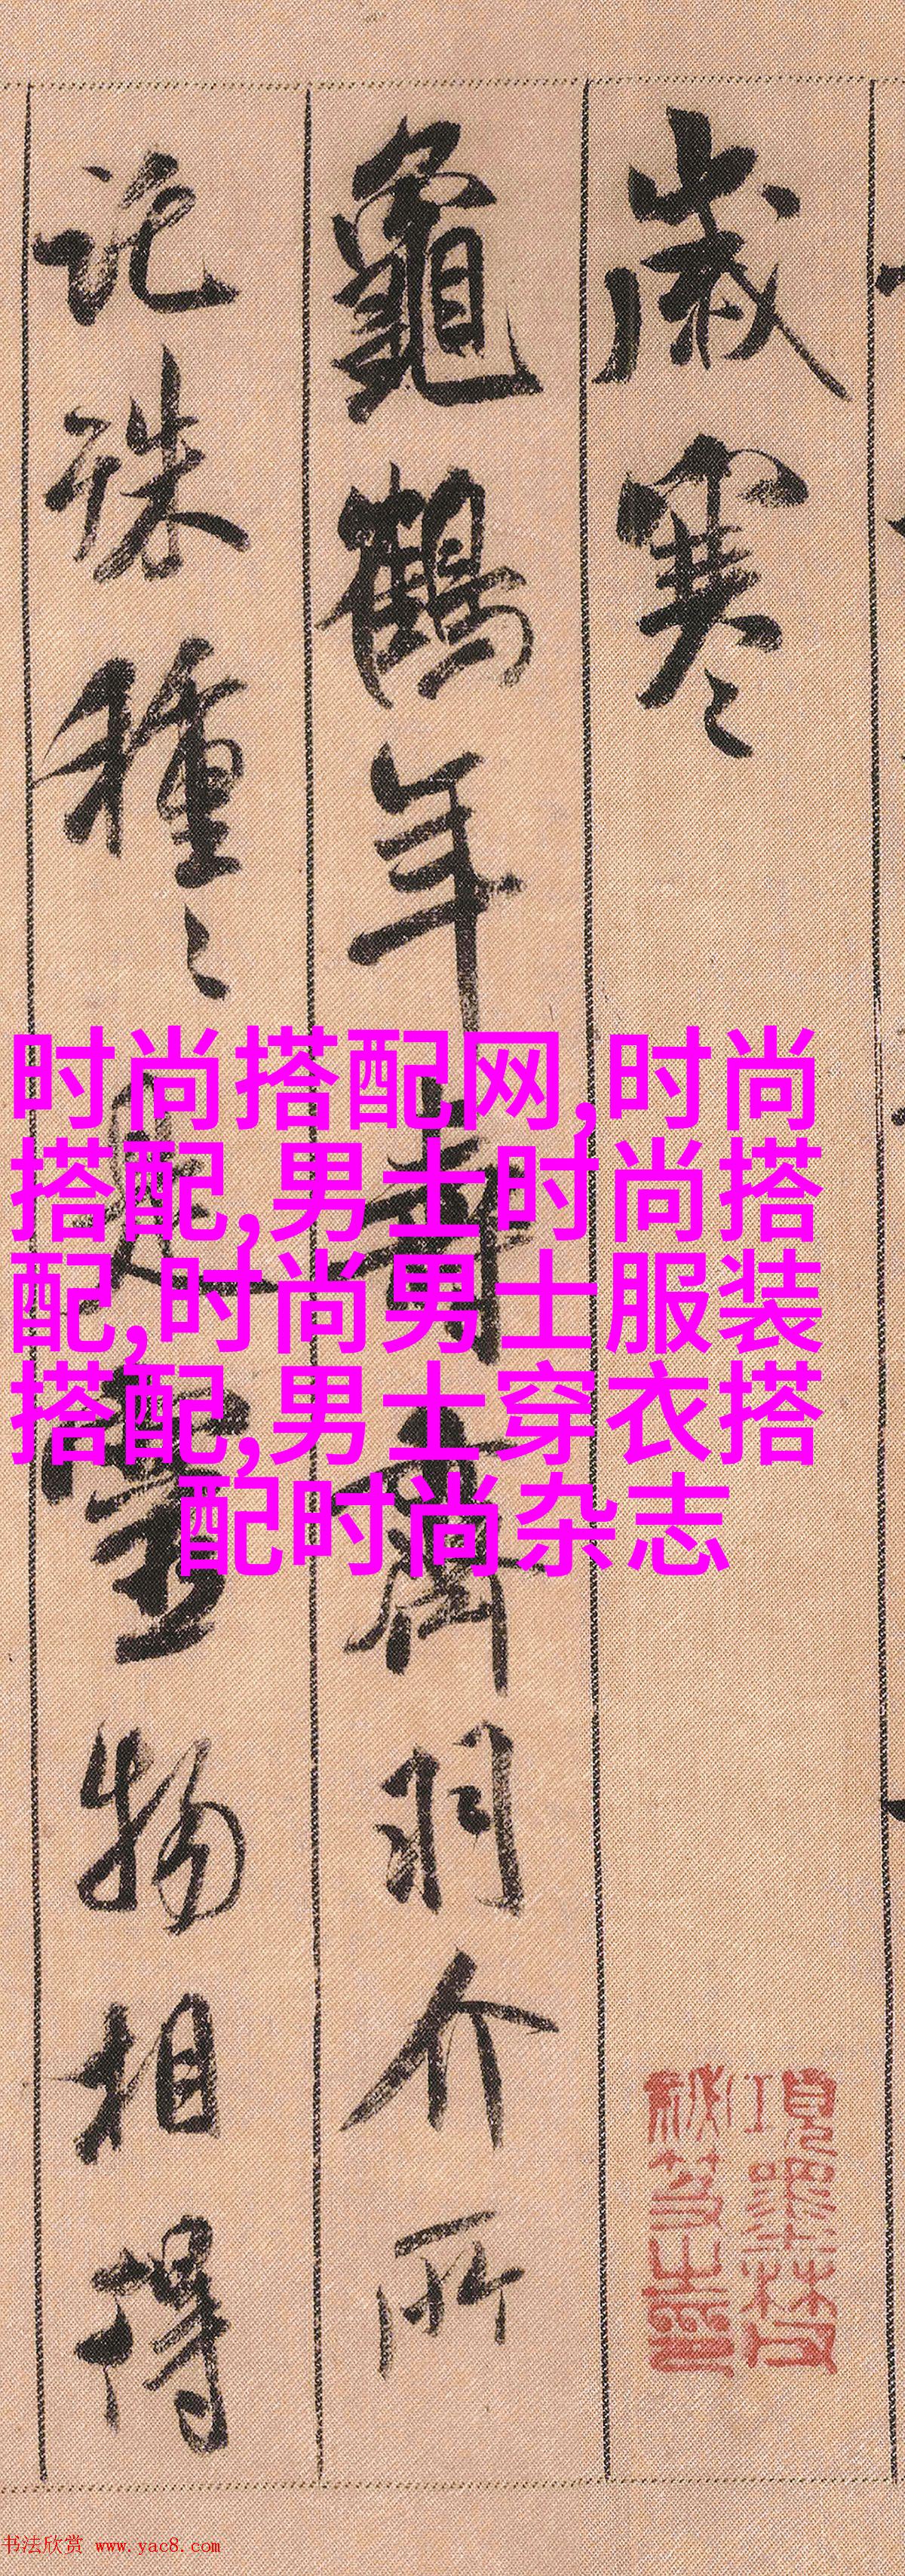 歲寒
龜鶴年壽齊羽介所
託殊種〻是靈物相得
项墨林父
祕笈之印
时尚搭配网,时尚
搭配,男士时尚搭
配,时尚男士服装
搭配,男士穿衣搭
配时尚杂志
书法欣赏 www.yac8.com